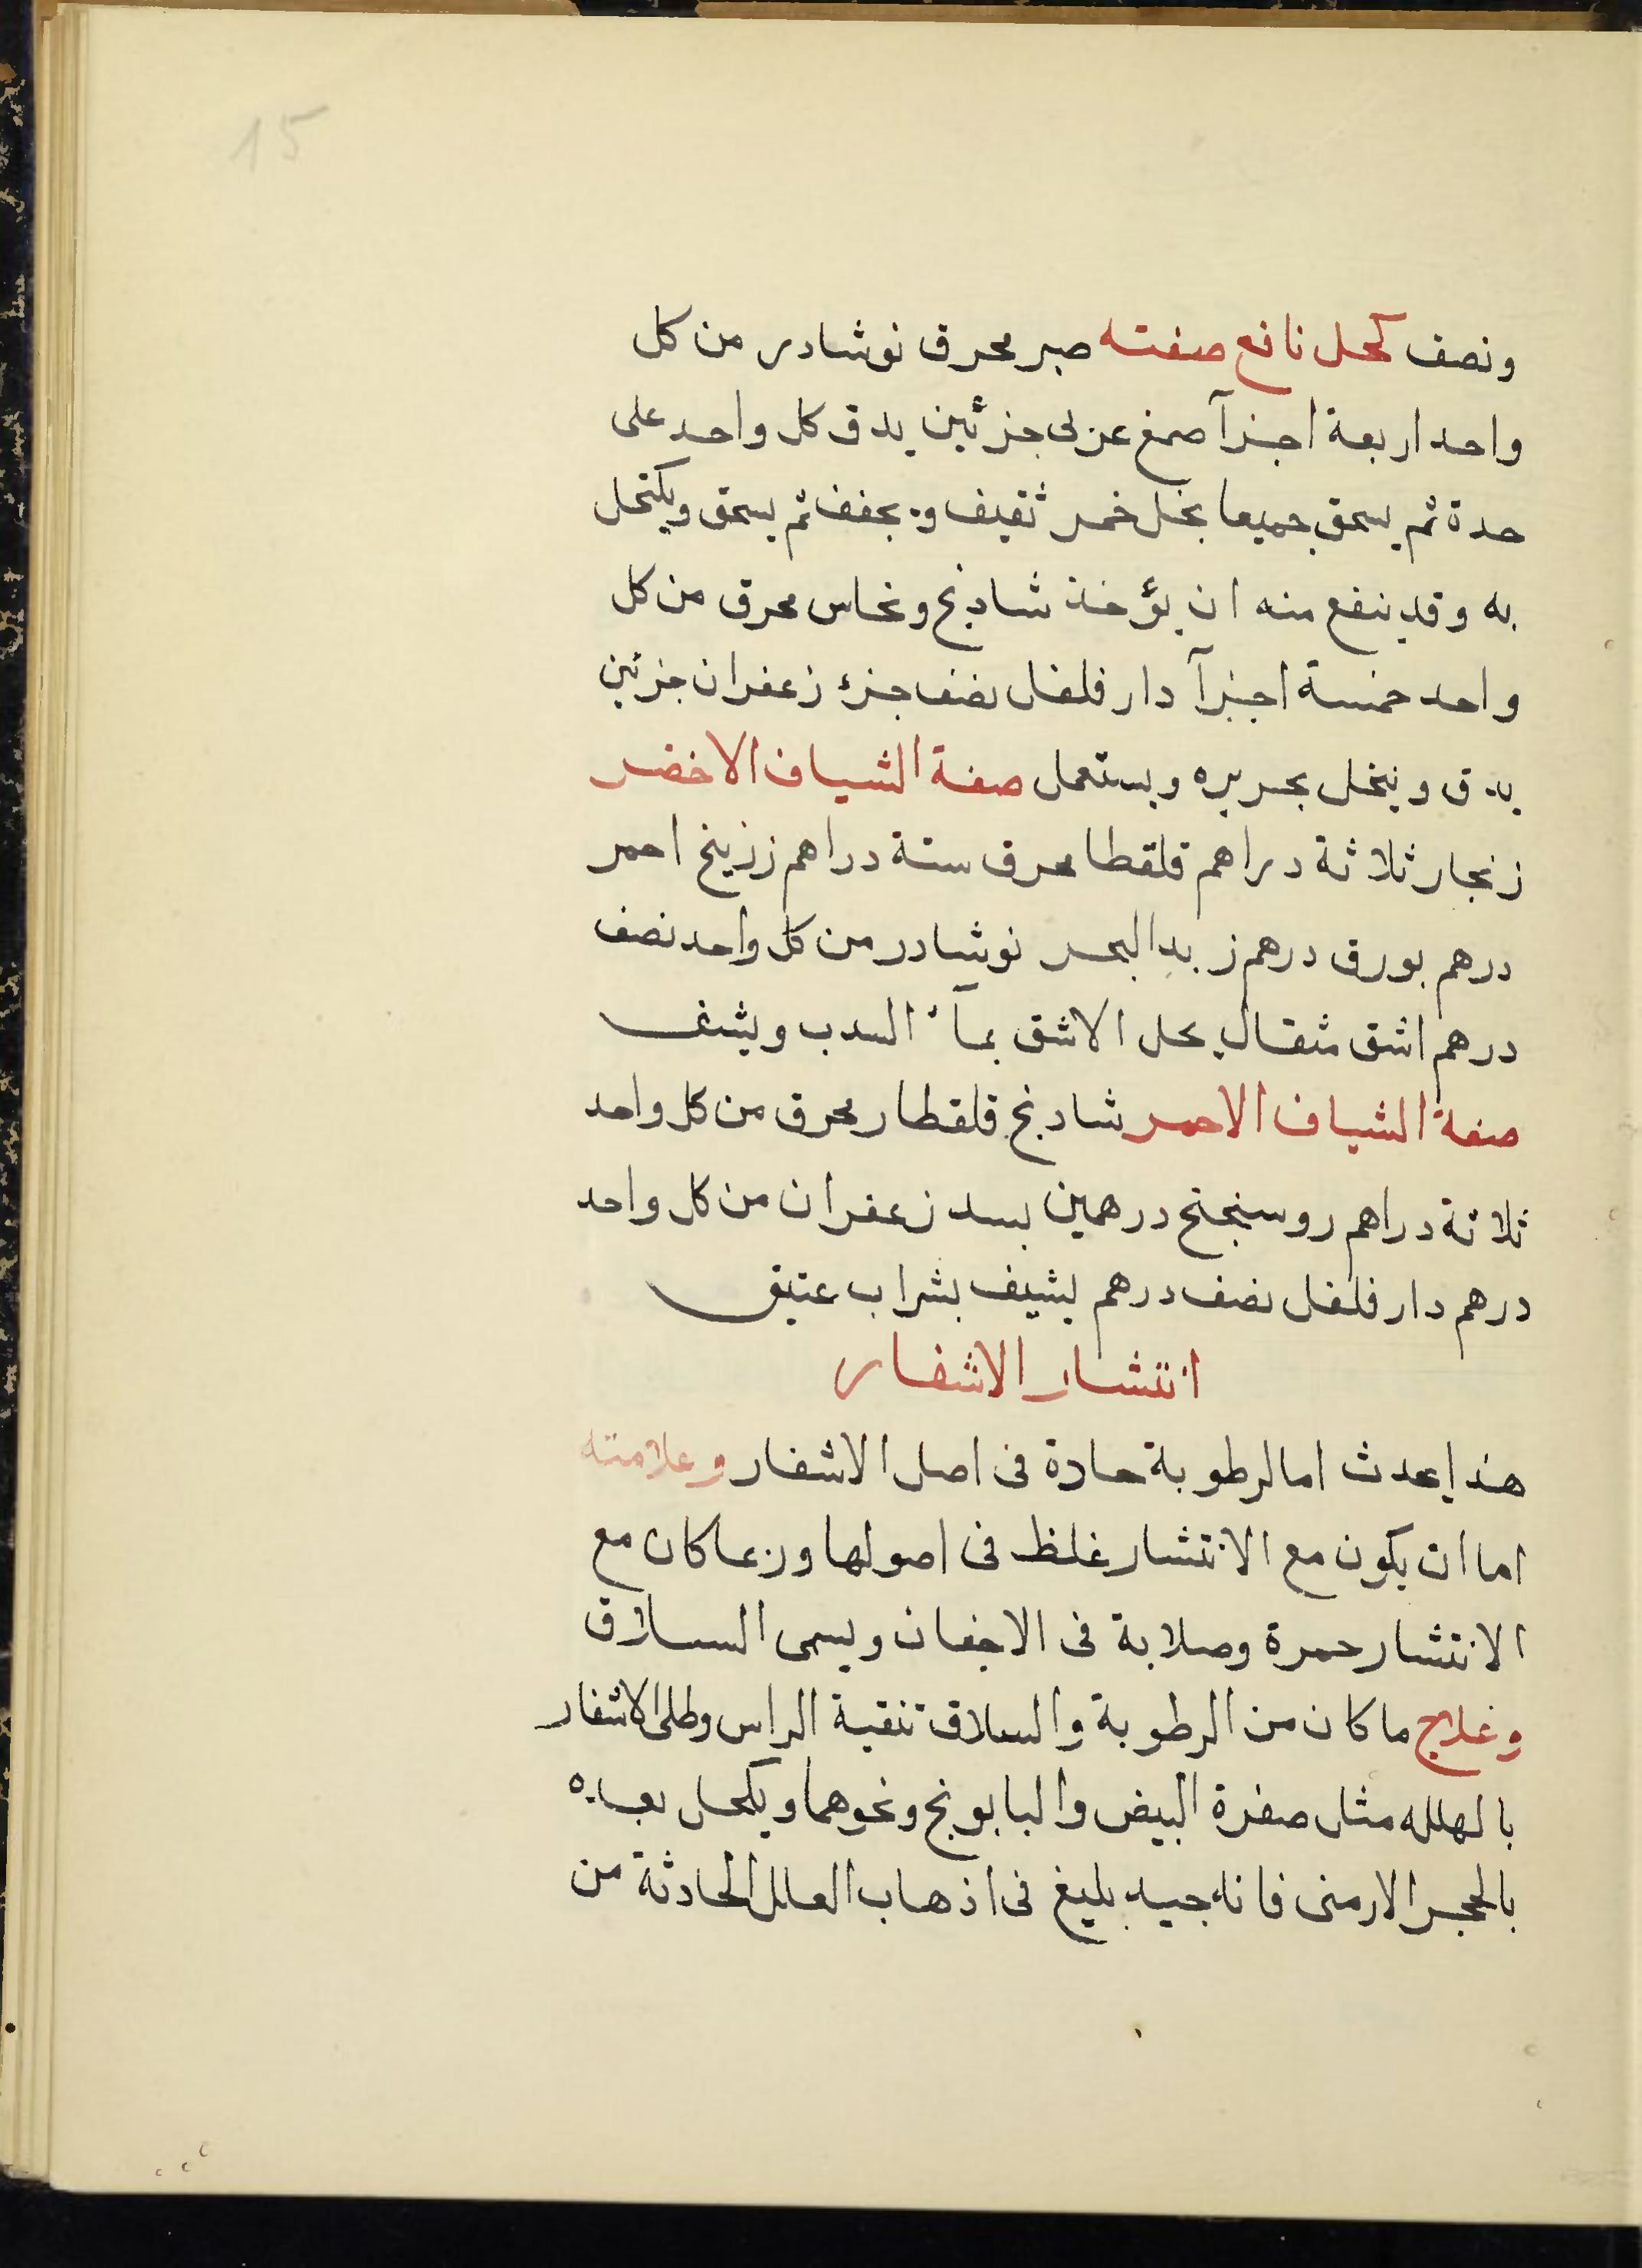 15
ونصف كحل نافع صفته صبر محرق نوشادر من كل
واحد اربعة اجزآ صمغ عربى جزئين يدق كل واحد على
حدة ثم يسحق جميعا بخل خمر ثقيف ويجفف ثم يسحق ويكتحل
به وقد ينفع منه ان يؤخذ شادنج ونحاس محرق من كل
واحد خمسة اجزآ دار فلفل نصف جزء زعفران جزئين
يدق وينخل بحريره ويستعمل صفة الشياف الاخضر
زنجار ثلاثة دراهم قلقطا محرق ستة دراهم زرنيخ احمر
درهم بورق درهم زبد البحر نوشادر من كل واحد نصف
درهم اشق مثقال يحل الاشق بمآء السدب ويشف
صفة الشياف الاحمر شادنج قلقطار محرق من كل واحد
ثلاثة دراهم روسنجنج درهمين بسد زعفران من كل واحد
درهم دار فلفل نصف درهم يشيف بشراب عتيق
انتشار الاشفار
هذا يحدث اما لرطوبة حادة فى اصل الاشفار وعلامته
اما ان يكون مع الانتشار غلظ فى اصولها وربما كان مع
الانتشار حمرة وصلابة فى الاجفان ويسمى السلاق
وعلاج ما كان من الرطوبة والسلاق تنقية الراس وطلى الاشفار
مثل صفرة البيض والبابونج ونحوهما ويكحل بعده
بالحجر الارمنى فانه جيد بليغ فى اذهاب العلل الحادثة من